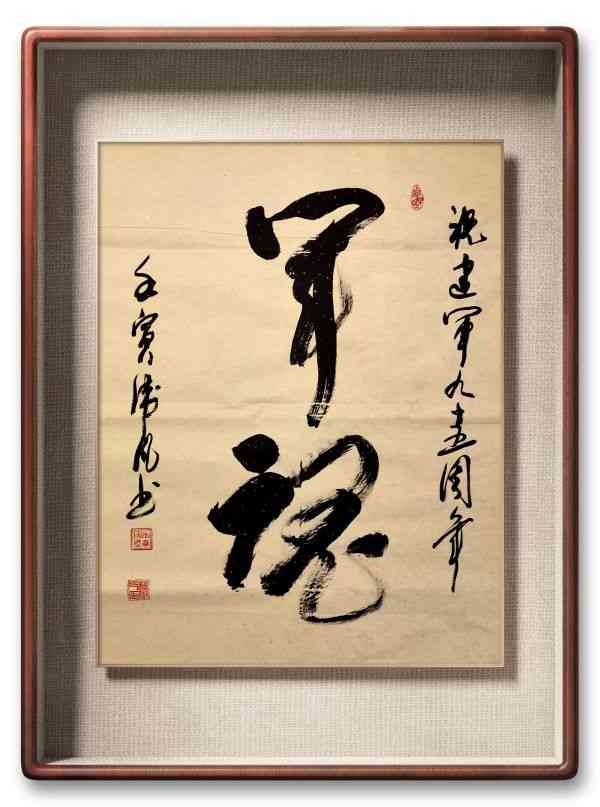 祝建军九五周年
军魂
壬寅书